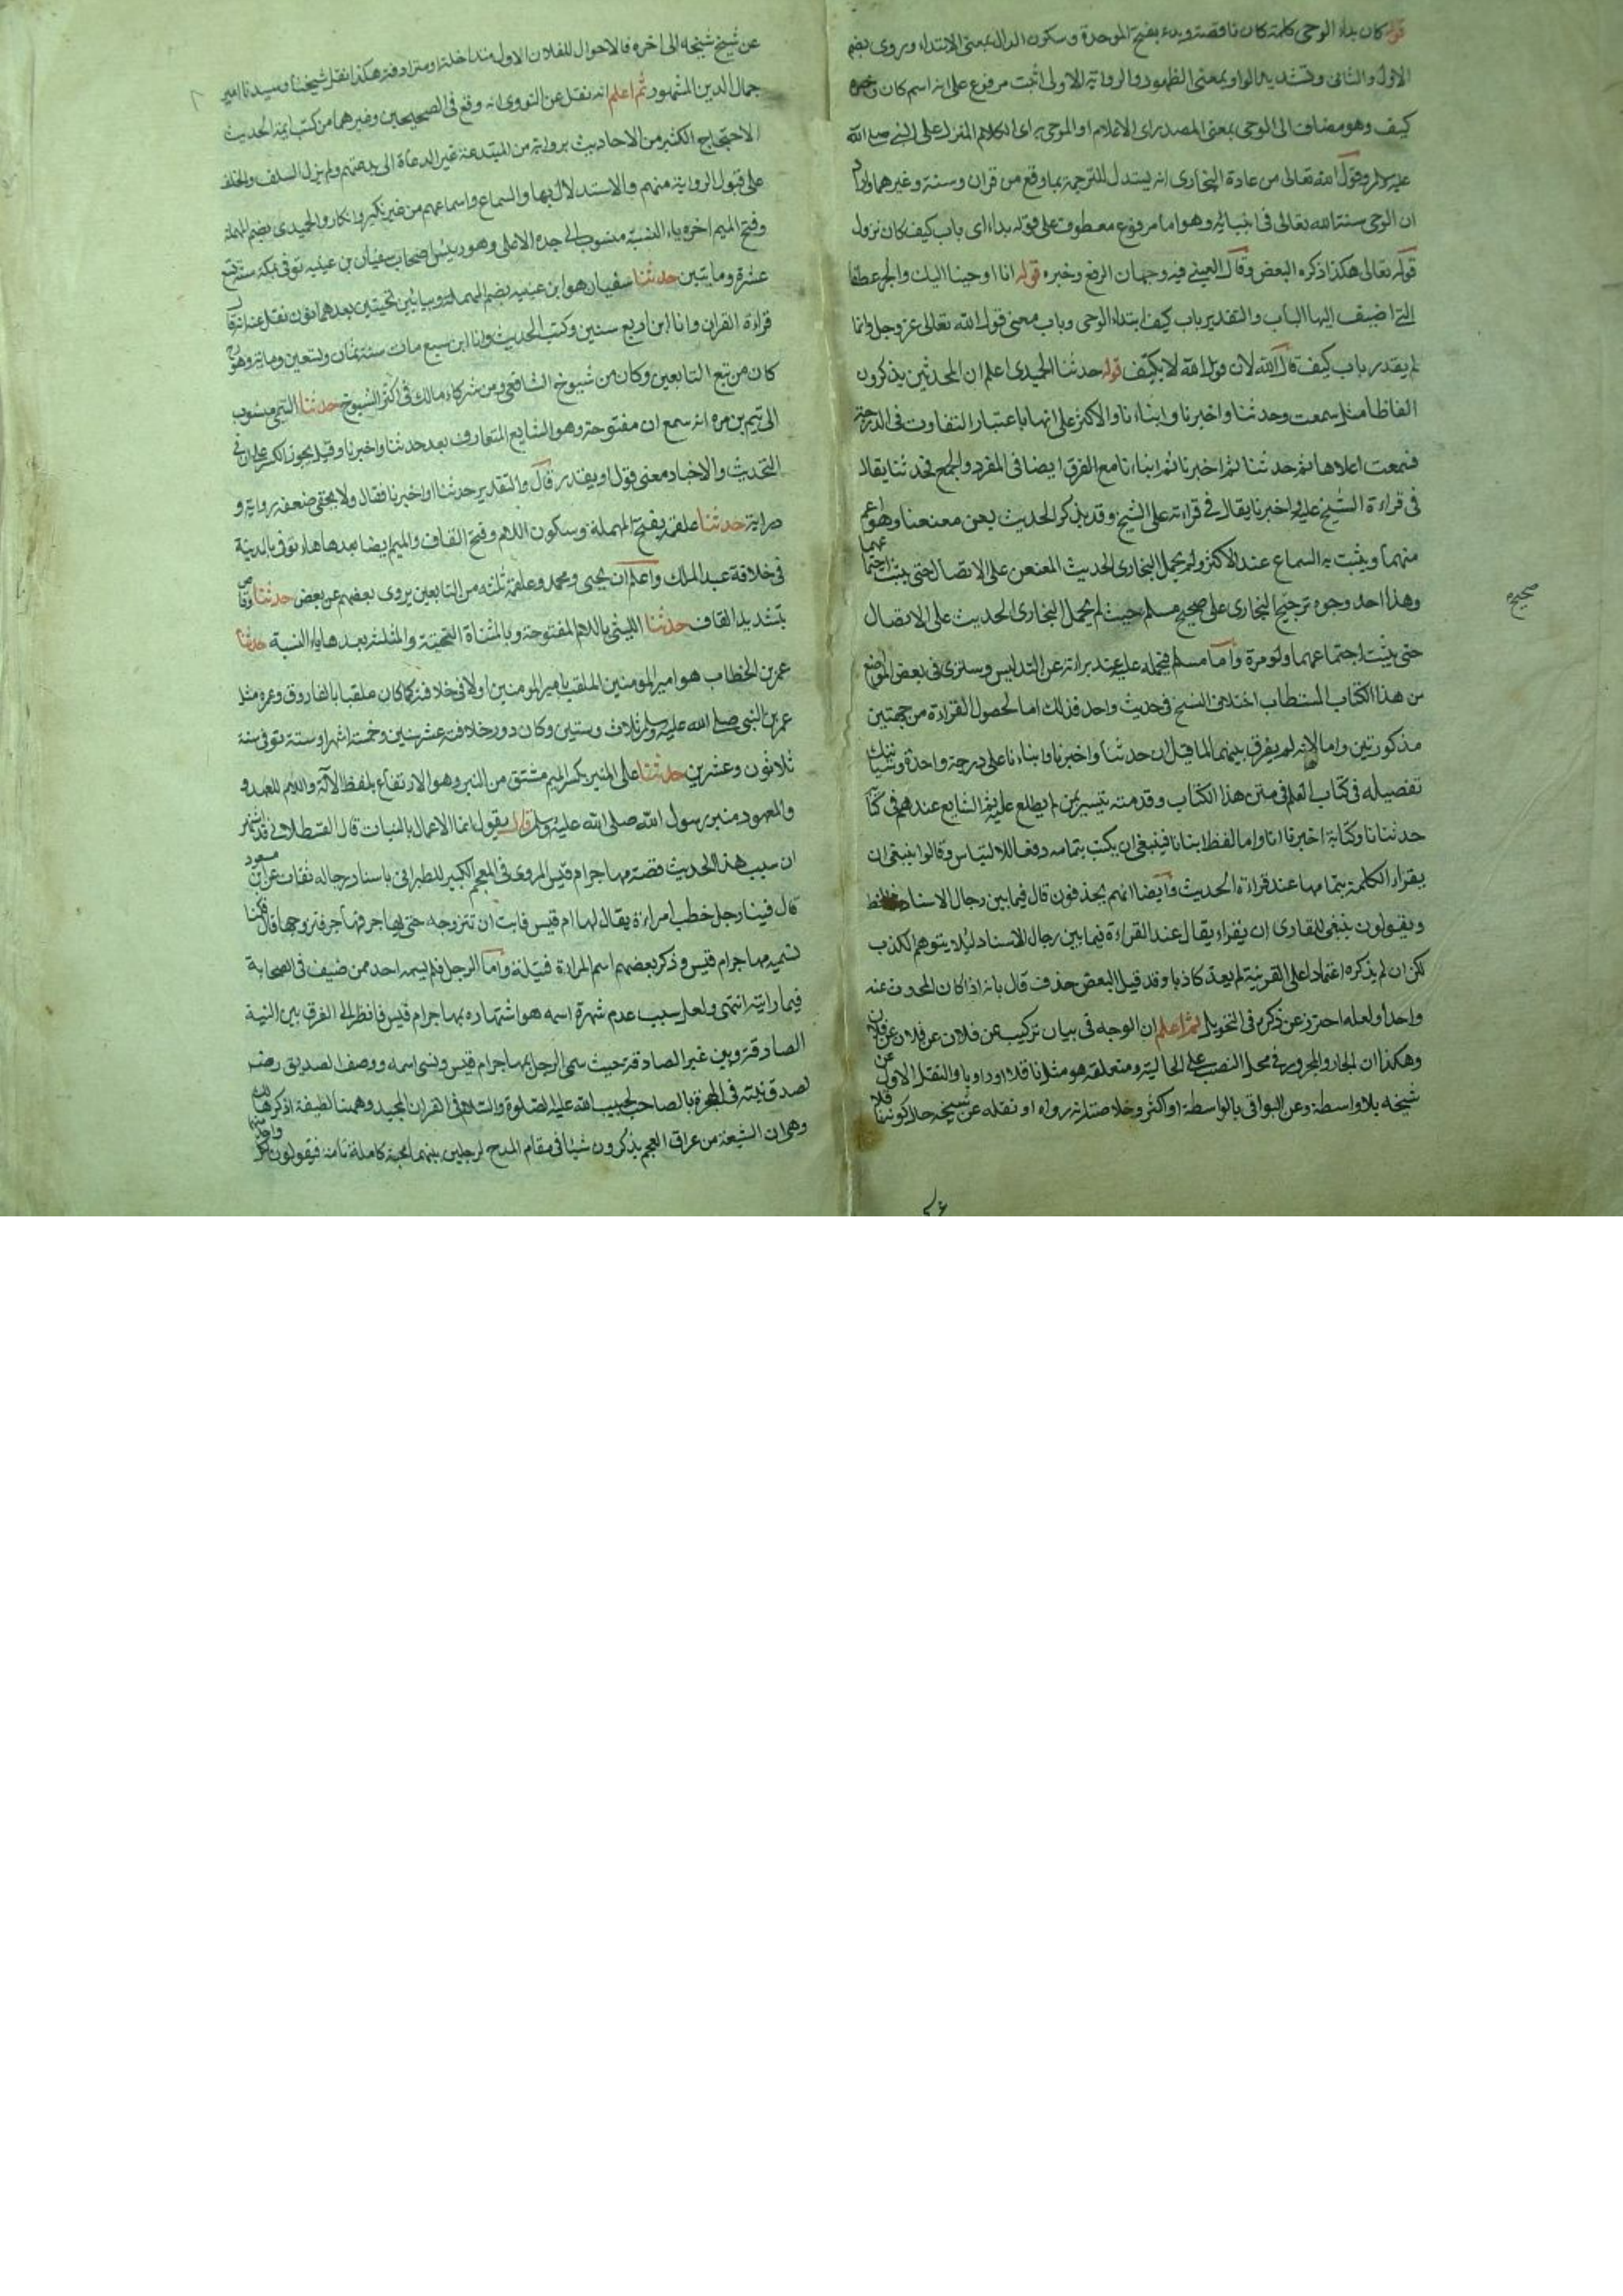 قوله كان بدء الوحى كلمة كان ناقصة وبدء بفتح الموحدة وسكون الدال بمعنى الابتداء وروى بضم
الاول والثانى وتشديد الواو بمعنى الظهور والرواية الاولى اثبت مرفوع على انه اسم كان وخبره
كيف وهو مضاف الى الوحى بمعنى المصدر اى الاعلام او الموحى به اى الكلام المنزل على النبى صلى الله
عليه وسلم وقول الله تعالى من عادة البخارى انه يستدل للترجمة بما وقع من قران وسنة وغيرهما واراد
ان الوحى سنة الله تعالى فى انبيائه وهو اما مرفوع معطوف على قوله بدء اى باب كيف كان نزول
قوله تعالى هكذا ذكره البعض وقال العينى فيه وجهان الرفع وخبره قوله انا اوحينا اليك والجر عطفا
التى اضيف اليها الباب والتقدير باب كيف ابتداء الوحى وباب معنى قول الله تعالى عز وجل وانما
لم يقدر باب كيف قال الله لان قول الله لا يكيف قوله حدثنا الحميدى اعلم ان المحدثين يذكرون
الفاظا مثل سمعت وحدثنا واخبرنا وانباءنا والاكثر على انها باعتبار التفاوت فى الدرجة
فسمعت اعلاها ثم حدثنا ثم اخبرنا ثم انباءنا مع الفرق ايضا فى المفرد والجمع فحدثنا يقال
فى قراءة الشيخ عليه واخبرنا يقال فى قراءته على الشيخ وقد يذكر الحديث بعن معنعنا وهو اعم
منهما ويثبت به السماع عند الاكثر ولم يحمل البخارى الحديث المعنعن على الاتصال حتى يثبت اجتماعهما
وهذا احد وجوه ترجيح البخارى على صحيح مسلم حيث لم يحمل البخارى الحديث على الاتصال
صحيح
حتى يثبت اجتماعهما ولو مرة واما مسلم فيحمله عليه عند براءته عن التدليس وسترى فى بعض المواضع
من هذا الكتاب المستطاب اختلاف النسخ فى حديث واحد فذلك اما لحصول القراءة من جهتين
مذكورتين واما لانه لم يفرق بينهما لما قيل ان حدثنا واخبرنا وانباءنا على درجة واحدة وسياتيك
تفصيله فى كتاب العلم فى متن هذا الكتاب وقدمته تيسيرا لمن لم يطلع عليه ثم الشايع عندهم فى كتابة
حدثنا نا وكتابة اخبرنا انا واما لفظ انبانا فينبغى ان يكتب بتمامه دفعا للالتباس وقالوا ينبغى ان
يقراء الكلمة بتمامها عند قراءة الحديث وايضا انهم يحذفون قال فيما بين رجال الاسناد خط
ويقولون ينبغى للقارى ان يقراء يقال عند القراءة فيما بين رجال الاسناد ليلا يتوهم الكذب
لكن ان لم يذكره اعتمادا على القرينة لم يعد كاذبا وقد قيل البعض حذف قال بانه اذا كان المحدوث عنه
واحدا ولعله احترز عن ذكره فى التحويل ثم اعلم ان الوجه فى بيان تركيب عن فلان عن فلان عن فلان
وهكذا ان الجار والمجرور فى محل النصب على الحالية ومتعلقه هو مثل ناقلا او راويا والنقل الاول عن
شيخه بلا واسطة وعن البواقى بالواسطة او اكثر وخلاصته انه رواه او نقله عن شيخه حال كونه ناقلا
عن شيخ شيخه الى اخره فالاحوال للفلان الاول متداخلة او مترادفة هكذا نقل شيخنا وسيدنا امير
جمال الدين المشهور ثم اعلم انه نقل عن النووى انه وقع فى الصحيحين وغيرهما من كتب ايمة الحديث
الاحتجاج الكثير من الاحاديث برواية من المبتدعة غير الدعاة الى بدعتهم ولم يزل السلف والخلف
على قبول الرواية منهم والاستدلال بها والسماع واسماعهم من غير نكير وانكار والحميدى بضم المهملة
وفتح الميم اخره ياء النسبة منسوب الى جده الاعلى وهو رييس اصحاب سفيان بن عيينه توفى بمكة سنة تسع
عشرة ومايتين حدثنا سفيان هو ابن عيينه بضم المهملة وبيائين تحتيتين بعدهما نون نقل عنه انه قال
قراءة القران وانا ابن اربع سنين وكتب الحديث وانا ابن سبع مات سنة ثمان وتسعين وماية وهو
كان من تبع التابعين وكان من شيوخ الشافعى ومن شركاء مالك فى اكثر الشيوخ حدثنا التيمى منسوب
الى تيم بن مره انه سمع ان مفتوحة وهو الشايع المتعارف بعد حدثنا واخبرنا وقيل يجوز الكسر على ان فى
التحديث والاخبار معنى قول او يقدر قال والتقدير حدثنا او اخبرنا فقال ولا يخفى ضعفه رواية و
دراية حدثنا علقمة بفتح المهملة وسكون اللام وفتح القاف والميم ايضا بعدها هاء توفى بالمدينة
فى خلافة عبد الملك واعلم ان يحيى ومحمد وعلقمة ثلثه من التابعين يروى بعضهم عن بعض حدثنا وقاص
بتشديد القاف حدثنا الليثى باللام المفتوحة وبالمثناة التحتية والمثلثة بعدها ياء النسبة حدثنا
عمر بن الخطاب هو امير المومنين الملقب بامير المومنين اولا فى خلافته كما كان ملقبا بالفاروق وعمره مثل
عمر النبى صلى الله عليه وسلم ثلاث وستين وكان دور خلافته عشر سنين وخمسة اشهر او ستة توفى سنة
ثلاثون وعشرين حدثنا على المنبر بكسر الميم مشتق من النبر وهو الارتفاع بلفظ الآلة واللام للعهد و
والمعهود منبر رسول الله صلى الله عليه وسلم قال يقول انما الاعمال بالنيات قال القسطلانى قد اشتهر
ان سبب هذا الحديث قصة مهاجر ام قيس المروى فى المعجم الكبير للطبرانى باسناد رجاله ثقات عن ابن مسعود
قال فينا رجل خطب امراءة يقال لها ام قيس فابت ان تتزوجه حتى يهاجر فهاجر فتزوجها قال فكنا
نسميه مهاجر ام قيس وذكر بعضهم اسم المراءة قيلة واما الرجل فلم يسمه احد ممن صنف فى الصحابة
فيما رايته انتهى ولعل سبب عدم شهرة اسمه هو اشتهاره بمهاجر ام قيس فانظر الى الفرق بين النية
الصادقة وبين غير الصادقة حيث سمى الرجل بمهاجر ام قيس ونسى اسمه ووصف الصديق رضه
لصدق نيته فى الهجرة بالصاحب لحبيب الله عليه الصلوة والسلام فى القران المجيد وههنا لطيفة اذكرها
وهى ان الشيعة من عراق العجم يذكرون شيئا فى مقام المدح لرجلين بينهما محبة كاملة تامة فيقولون